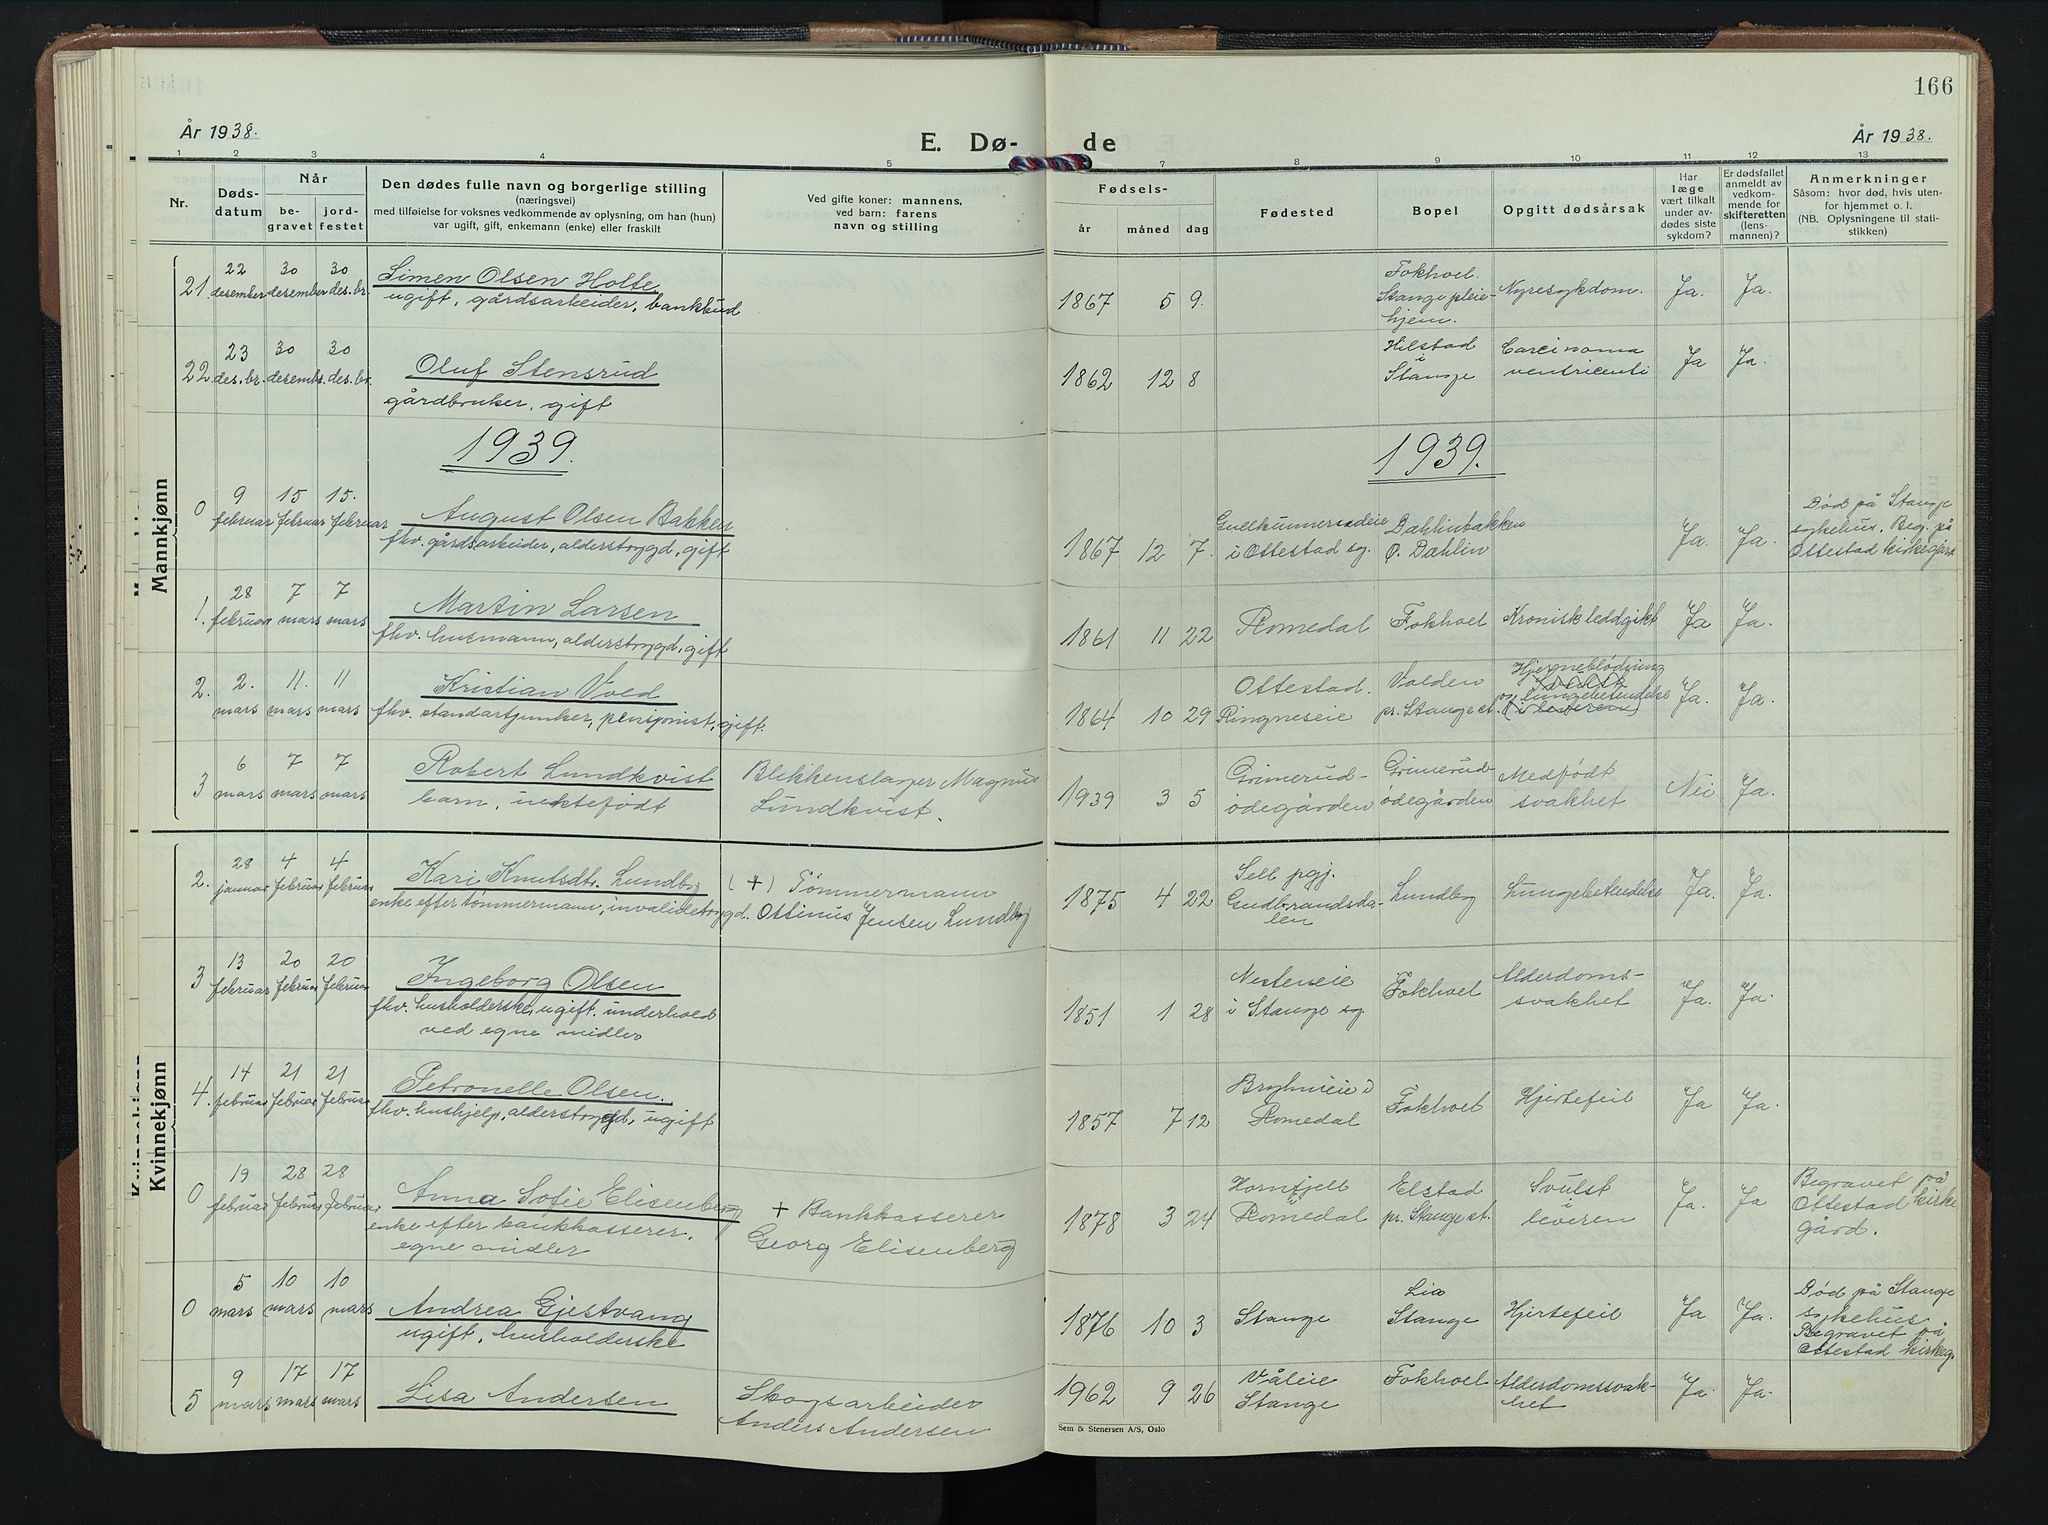 166
År 1938.
E. Dø-
de
År 1938.
1 2 3 4 5 7 8 9 10 11 12 13
Nr.
Døds-
datum
Når
be-
gravet
jord-
festet
Den dødes fulle navn og borgerlige stilling
(næringsvei)
med tilføielse for voksnes vedkommende av oplysning, om han (hun)
var ugift, gift, enkemann (enke) eller fraskilt
Ved gifte koner: mannens,
ved barn: farens
navn og stilling
Fødsels-
år måned dag
Fødested
Bopel
Opgitt dødsårsak
Har
læge
vært tilkalt
under av-
dødes siste
sykdom?
Er dødsfallet
anmeldt av
vedkom-
mende for
skifteretten
(lens-
mannen)?
Anmerkninger
Såsom: hvor død, hvis uten-
for hjemmet o. l.
(NB. Oplysningene til stati-
stikken)
Mannkjønn
21. 22 desember 30 desember 30 des.br.
Simen Olsen Holte
ugift, gårdsarbeider, bankbud
1867 5 9.
Fokhoel.
Stange pleie-
hjem.
Nyresykdom.
Ja. Ja.
22 23 des.br. 30 desemb. 30 des.br.
Oluf Stensrud
gårdbruker, gift
1862 12 8
Hilstad
i
Stange
Carcinoma
ventricenti
Ja Ja.
1939.
1939.
0 9 februar 15 februar 15. februar
August Olsen Bakken
fhv. gårdsarbeider, alderstrygd, gift
1867 12 7.
i Ottestad sg.
Dahlinbakken
Ø. Dahlin
Ja. Ja.
Død på Stange
sykehus. Beg. på
Ottestad kirkegård
1. 28 februar 7 mars 7 mars
Martin Larsen
fhv. husmann, alderstrygd, gift
1861 11 22
Romedal
Fokhoel
Kronisk leddgikt
Ja Ja.
2. 2. mars 11. mars 11 mars
Kristian Vold
fhv. standartjunker, pensjonist, gift.
1864 10 29
Ottestad.
Ringneseie
Volden
pr. Stange st.
Hjerneblødning
og lungebetendelse
(i leveren)
Ja. Ja.
3 6 mars 7 mars 7 mars
Robert Lundkvist
barn, uektefødt
Blikkenslager Magnus
Lundkvist.
1939 3 5
Grimerud-
ødegården
Grimerud-
ødegården
Medfødt
svakhet
Nei Ja.
Kvinnekjønn
2. 28 januar 4 februar 4 februar
Kari Knutsdtr. Lundby
enke efter tømmermann, invalidetrygd.
(+) Tømmermann
Ottinus Jensen Lundby
1875 4 22
Sell pgj.
Gudbrandsda-
len
Lundby
Lungebetendelse
Ja. Ja.
3 13 februar 20 februar 20 februar
Ingeborg Olsen
fhv. husholderske, ugift. underhold
ved egne midler
1851 1 28
i Stange sg
Fokhoel
Alderdoms-
svakhet
Ja. Ja.
4. 14 februar 21 februar 21 februar
Petronelle Olsen.
fhv. hushjelp, alderstrygd, ugift
1857 7 12
Romedal
Fokhoel
Hjertefeil
Ja Ja.
0 19 februar 28 februar 28 februar
Anna Sofie Elisenberg
enke efter bankkasserer.
egne midler
+ Bankkasserer
Georg Elisenberg
1878 3 24
Hornfjell
i
Romedal
Elstad
pr. Stange st.
Svulst
i
leveren
Ja. Ja
Begravet på
Ottestad kirke
gård.
0 5 mars 10 mars 10 mars
Andrea Gjestvang
ugift, husholderske
1876 10 3
Stange
Lia
Stange
Hjertefeil
Ja Ja.
Død på Stange
sykehus
Begravet på
Ottestad kirkeg.
5 9 mars 17 mars 17 mars
Lisa Andersen
Skogsarbeider
Anders Andersen
1962 9 26
Våleie
Stange
Fokhoel
Alderdomssvak-
het
Ja. Ja.
Sem & Stenersen A/S, Oslo